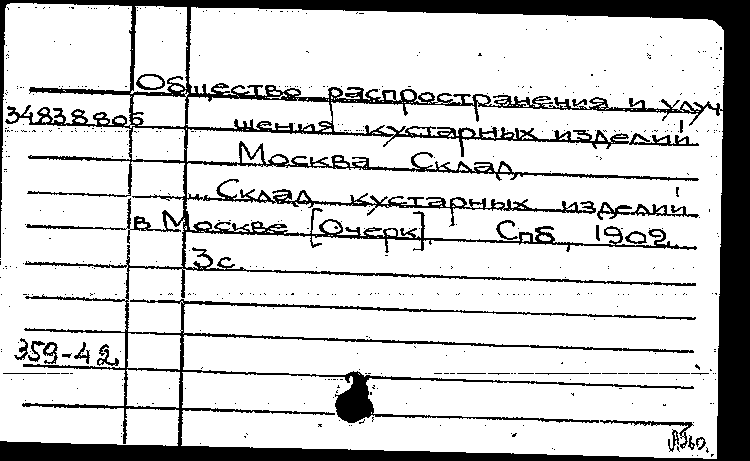 Общество распространения и улуч
34838.805 шения кустарных изделий
Москва Склад.
... Склад кустарных изделий
в Москве [Очерк]. Спб, 1909.
3с.
359-42